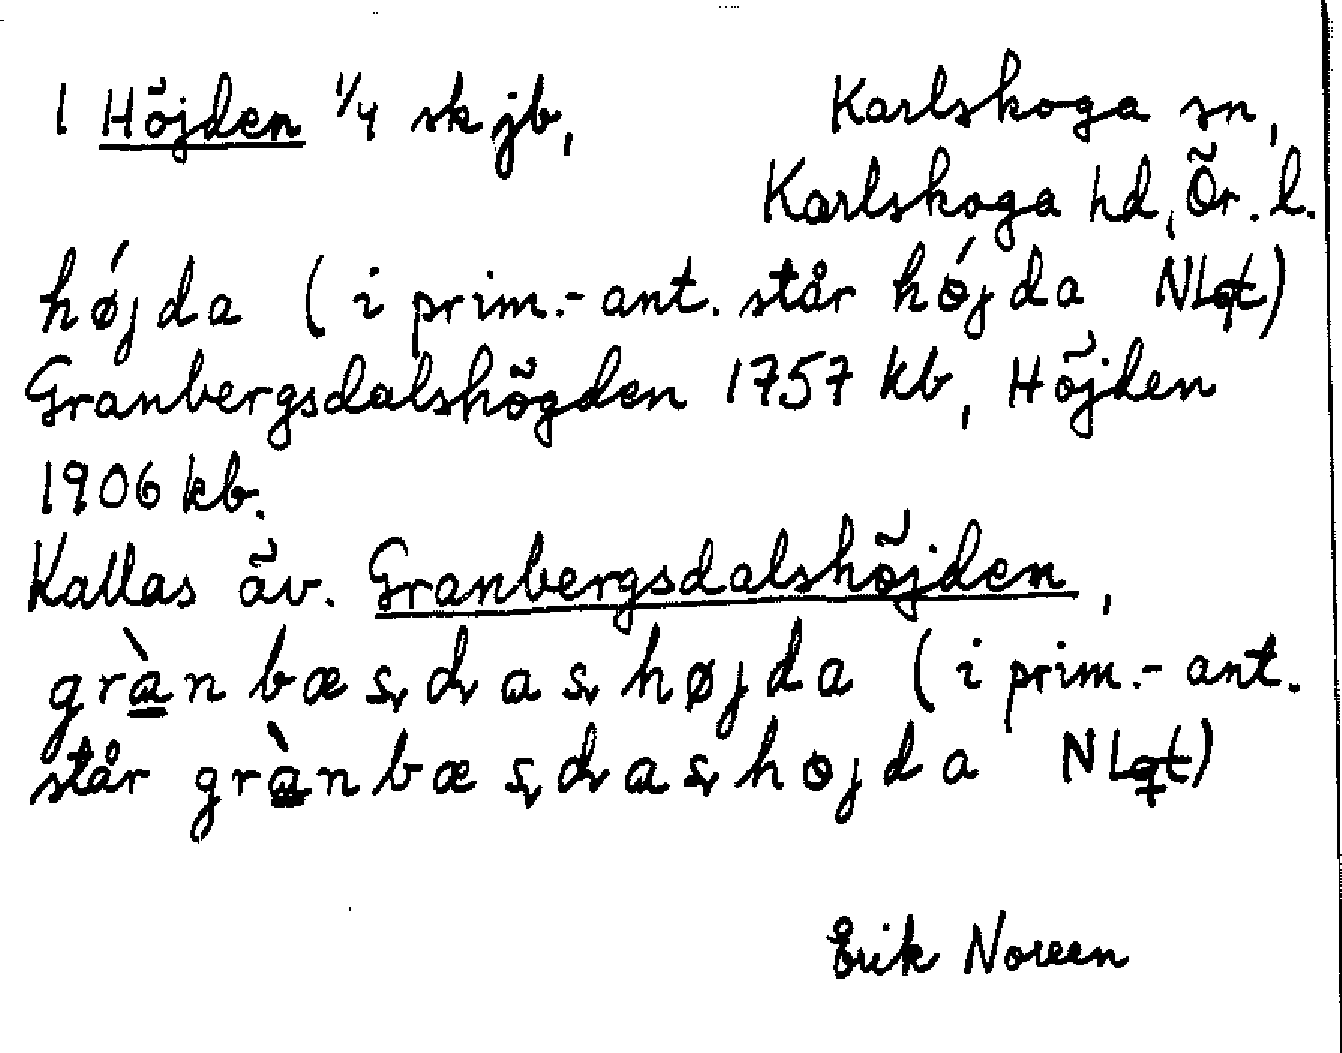 1 Höjden 1/4 sk jb, Karlskoga sn,
Karlskoga hd, Ör. l.
hǿjda (i prim.-ant. står hójda NLqt)
Granbergsdalshögden 1757 kb, Höjden
1906 kb.
Kallas äv. Granbergsdalshöjden,
grànbæsdashøjda (i prim.-ant.
står grànbæsdashojda NLqt)
Erik Noreen